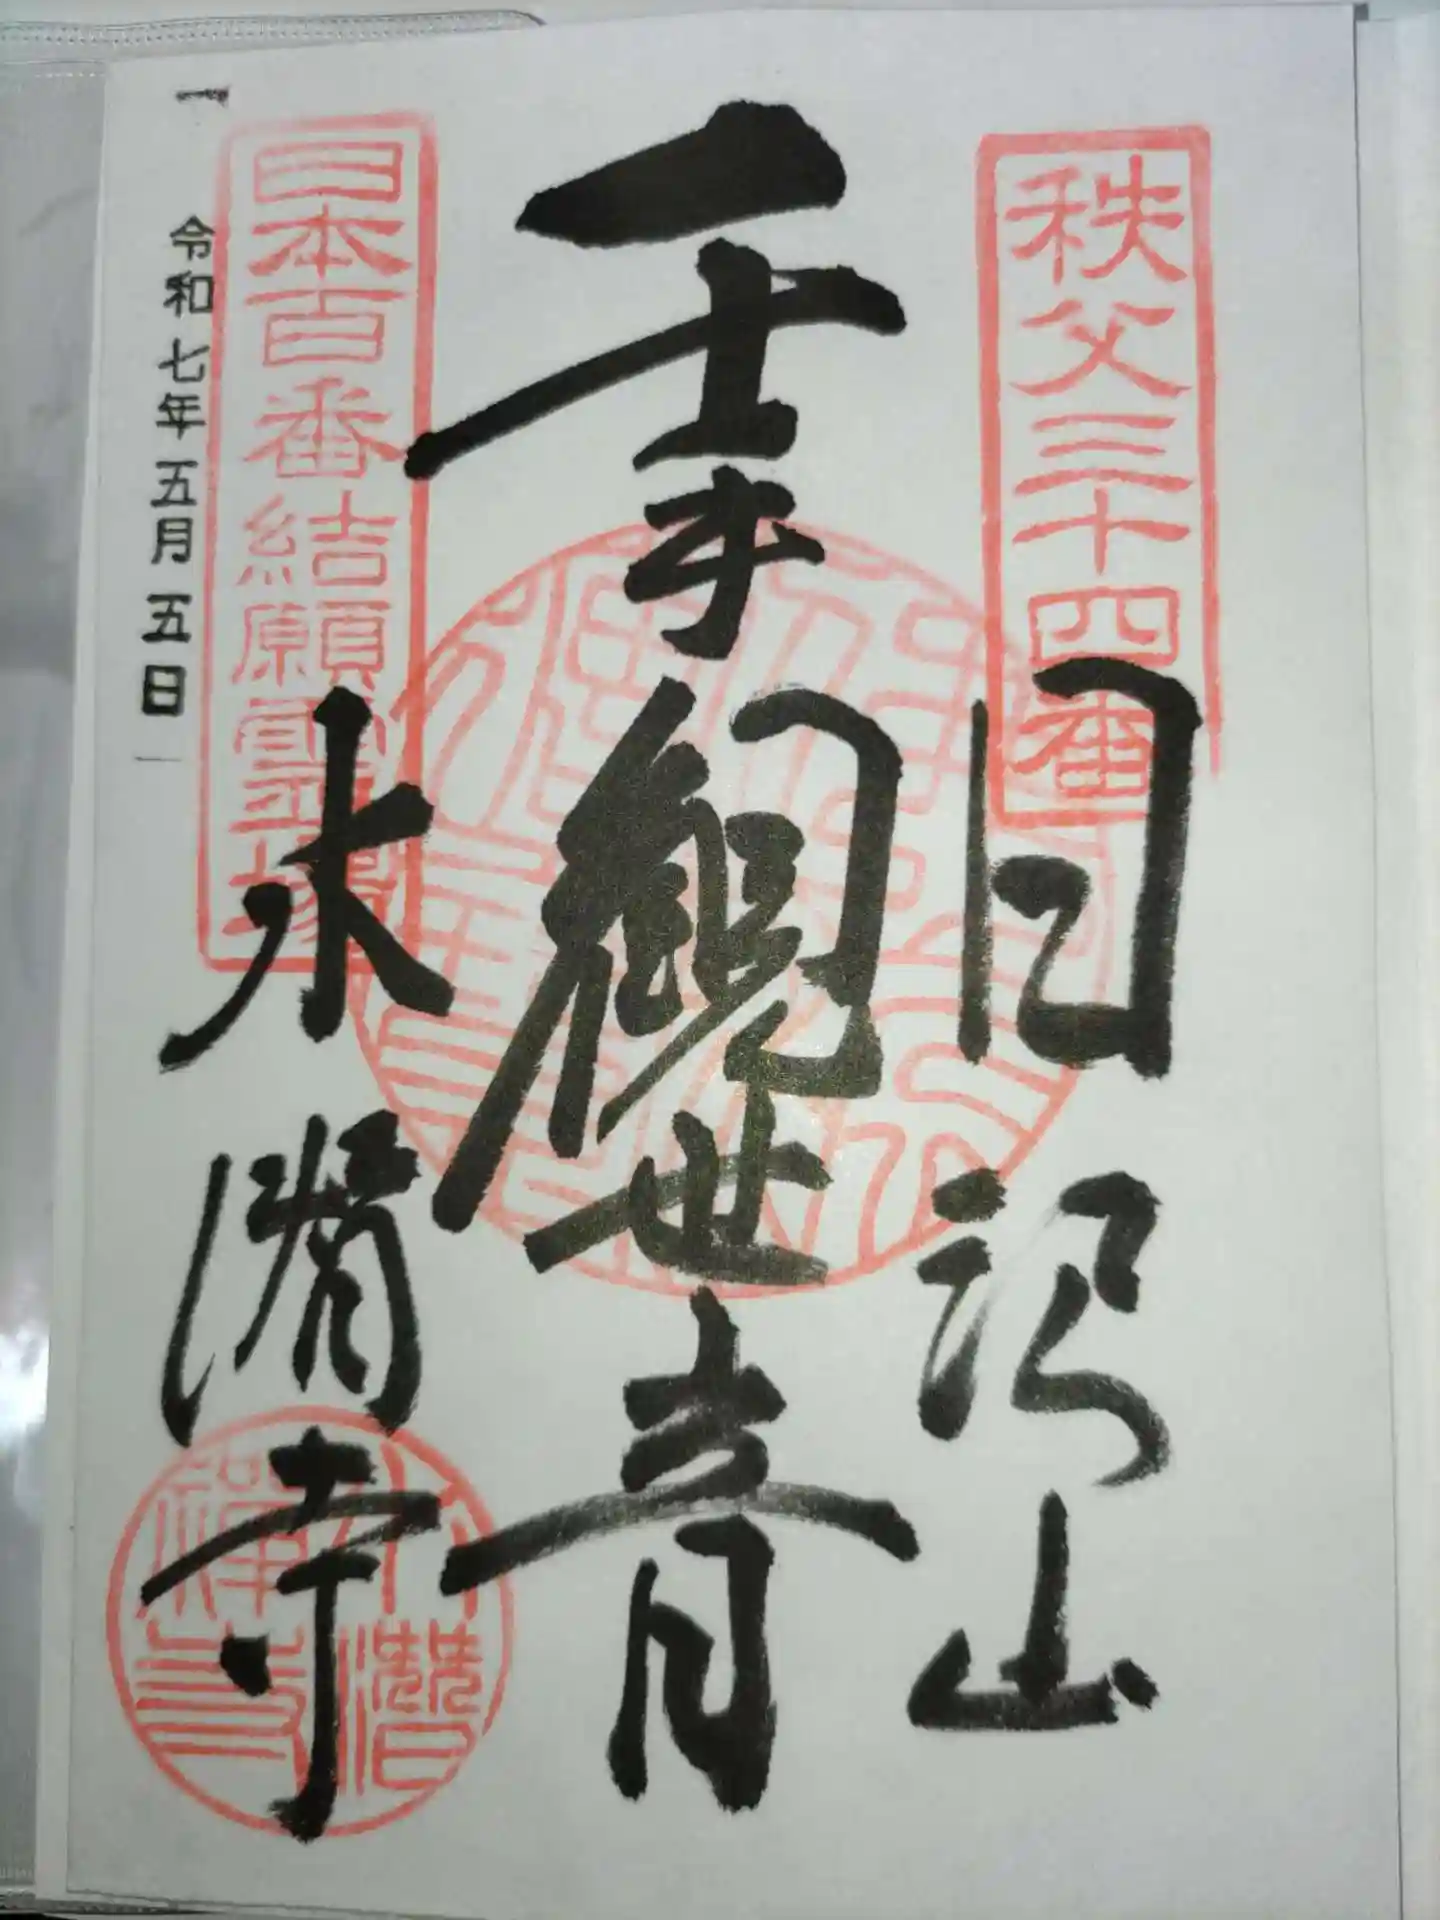 秩父三十四番
日沢山
千手觀世音
日本百番結願霊場
水潜寺
水潜禅寺
令和七年五月五日